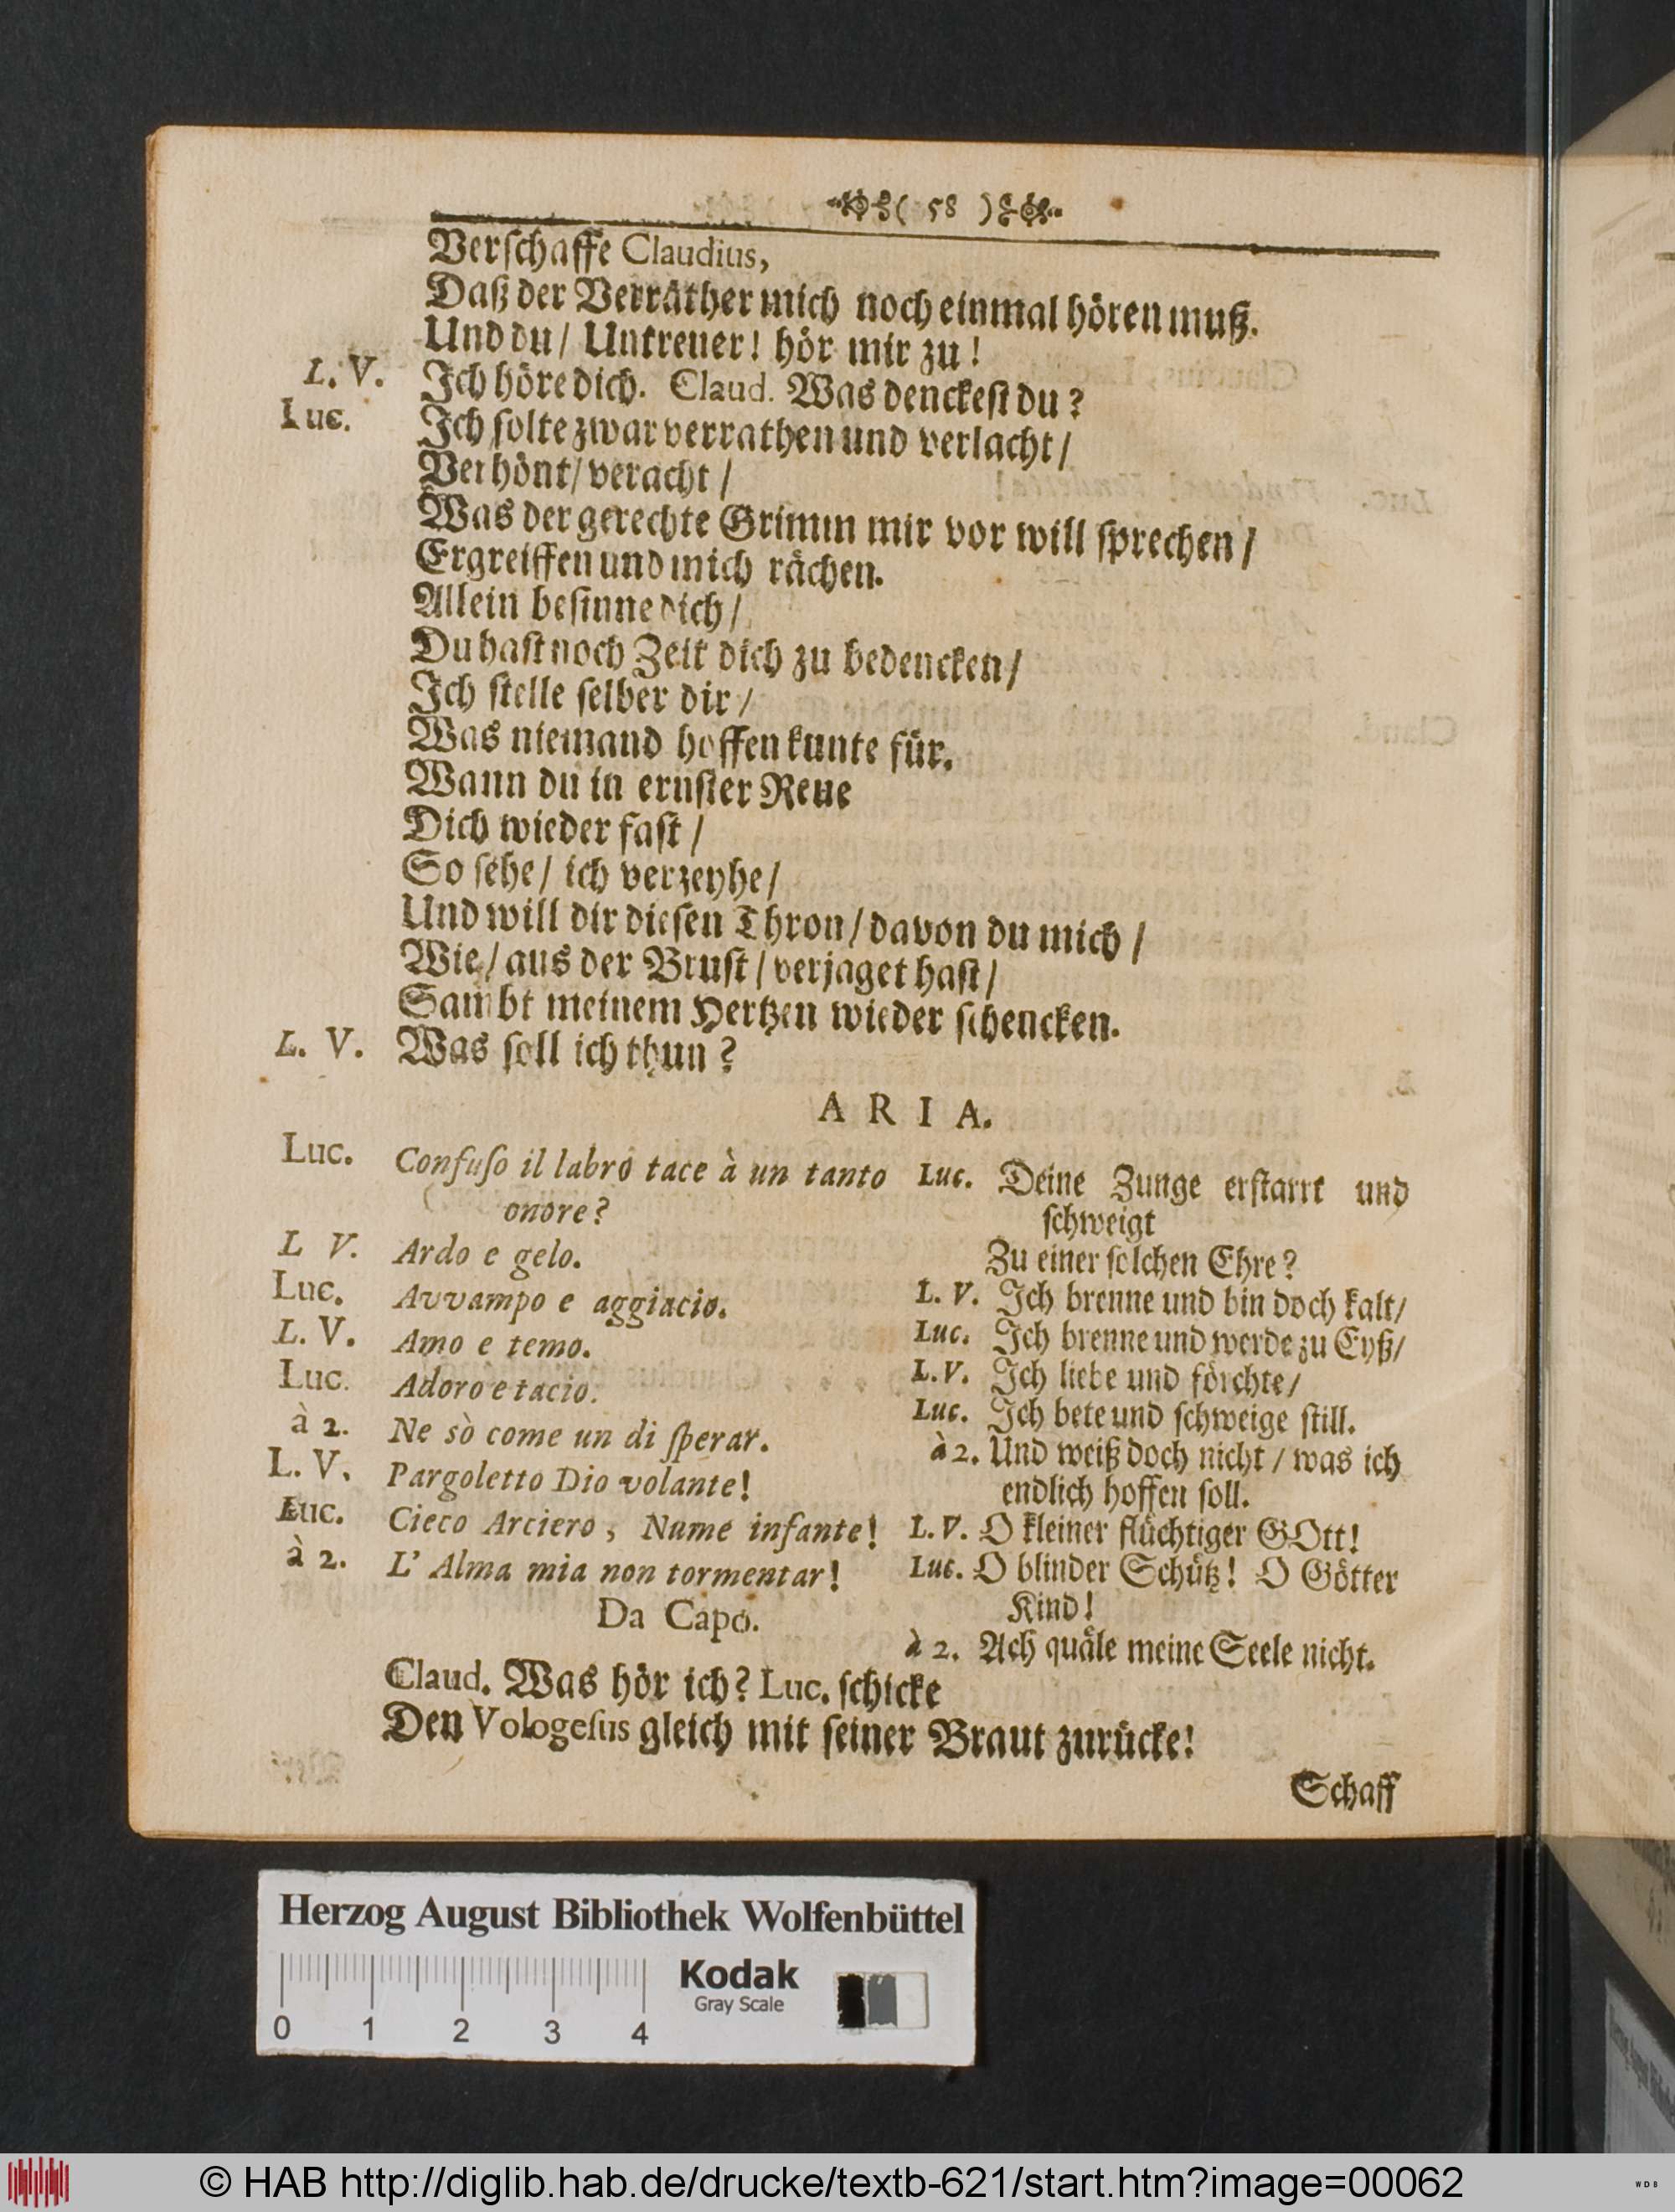 ( 58 )
Verſchaffe Claudius,
Daß der Verräther mich noch einmal hören muß.
Und du / Untreuer! hör mir zu!
L. V. Ich höre dich. Claud. Was denckeſt du?
Luc. Ich ſolte zwar verrathen und verlacht /
Verhönt / veracht /
Was der gerechte Grimm mir vor will ſprechen /
Ergreiffen und mich rächen.
Allein beſinne dich /
Du haſt noch Zeit dich zu bedencken /
Ich ſtelle ſelber dir /
Was niemand hoffen kunte für.
Wann du in ernſter Reue
Dich wieder faſt /
So ſehe / ich verzeyhe /
Und will dir dieſen Thron / davon du mich /
Wie / aus der Bruſt / verjaget haſt /
Sambt meinem Hertzen wieder ſchencken.
L. V. Was ſoll ich thun?
ARIA.
Luc. Confuſo il labro tace à un tanto
onore?
L V. Ardo e gelo.
Luc. Avvampo e aggiacio.
L. V. Amo e temo.
Luc. Adoro e tacio.
à 2. Ne sò come un di ſperar.
L. V. Pargoletto Dio volante!
Luc. Cieco Arciero, Nume infante!
à 2. L' Alma mia non tormentar!
Da Capo.
Luc. Deine Zunge erſtarrt und
ſchweigt
Zu einer ſolchen Ehre?
L. V. Ich brenne und bin doch kalt /
Luc. Ich brenne und werde zu Eyß /
L. V. Ich liebe und förchte /
Luc. Ich bete und ſchweige ſtill.
à 2. Und weiß doch nicht / was ich
endlich hoffen ſoll.
L. V. O kleiner flüchtiger GOtt!
Luc. O blinder Schütz! O Götter
Kind!
à 2. Ach quäle meine Seele nicht.
Claud. Was hör ich? Luc. ſchicke
Den Vologeſus gleich mit ſeiner Braut zurücke!
Schaff
Herzog August Bibliothek Wolfenbüttel
Kodak
Gray Scale
0 1 2 3 4
© HAB http://diglib.hab.de/drucke/textb-621/start.htm?image=00062
WDB